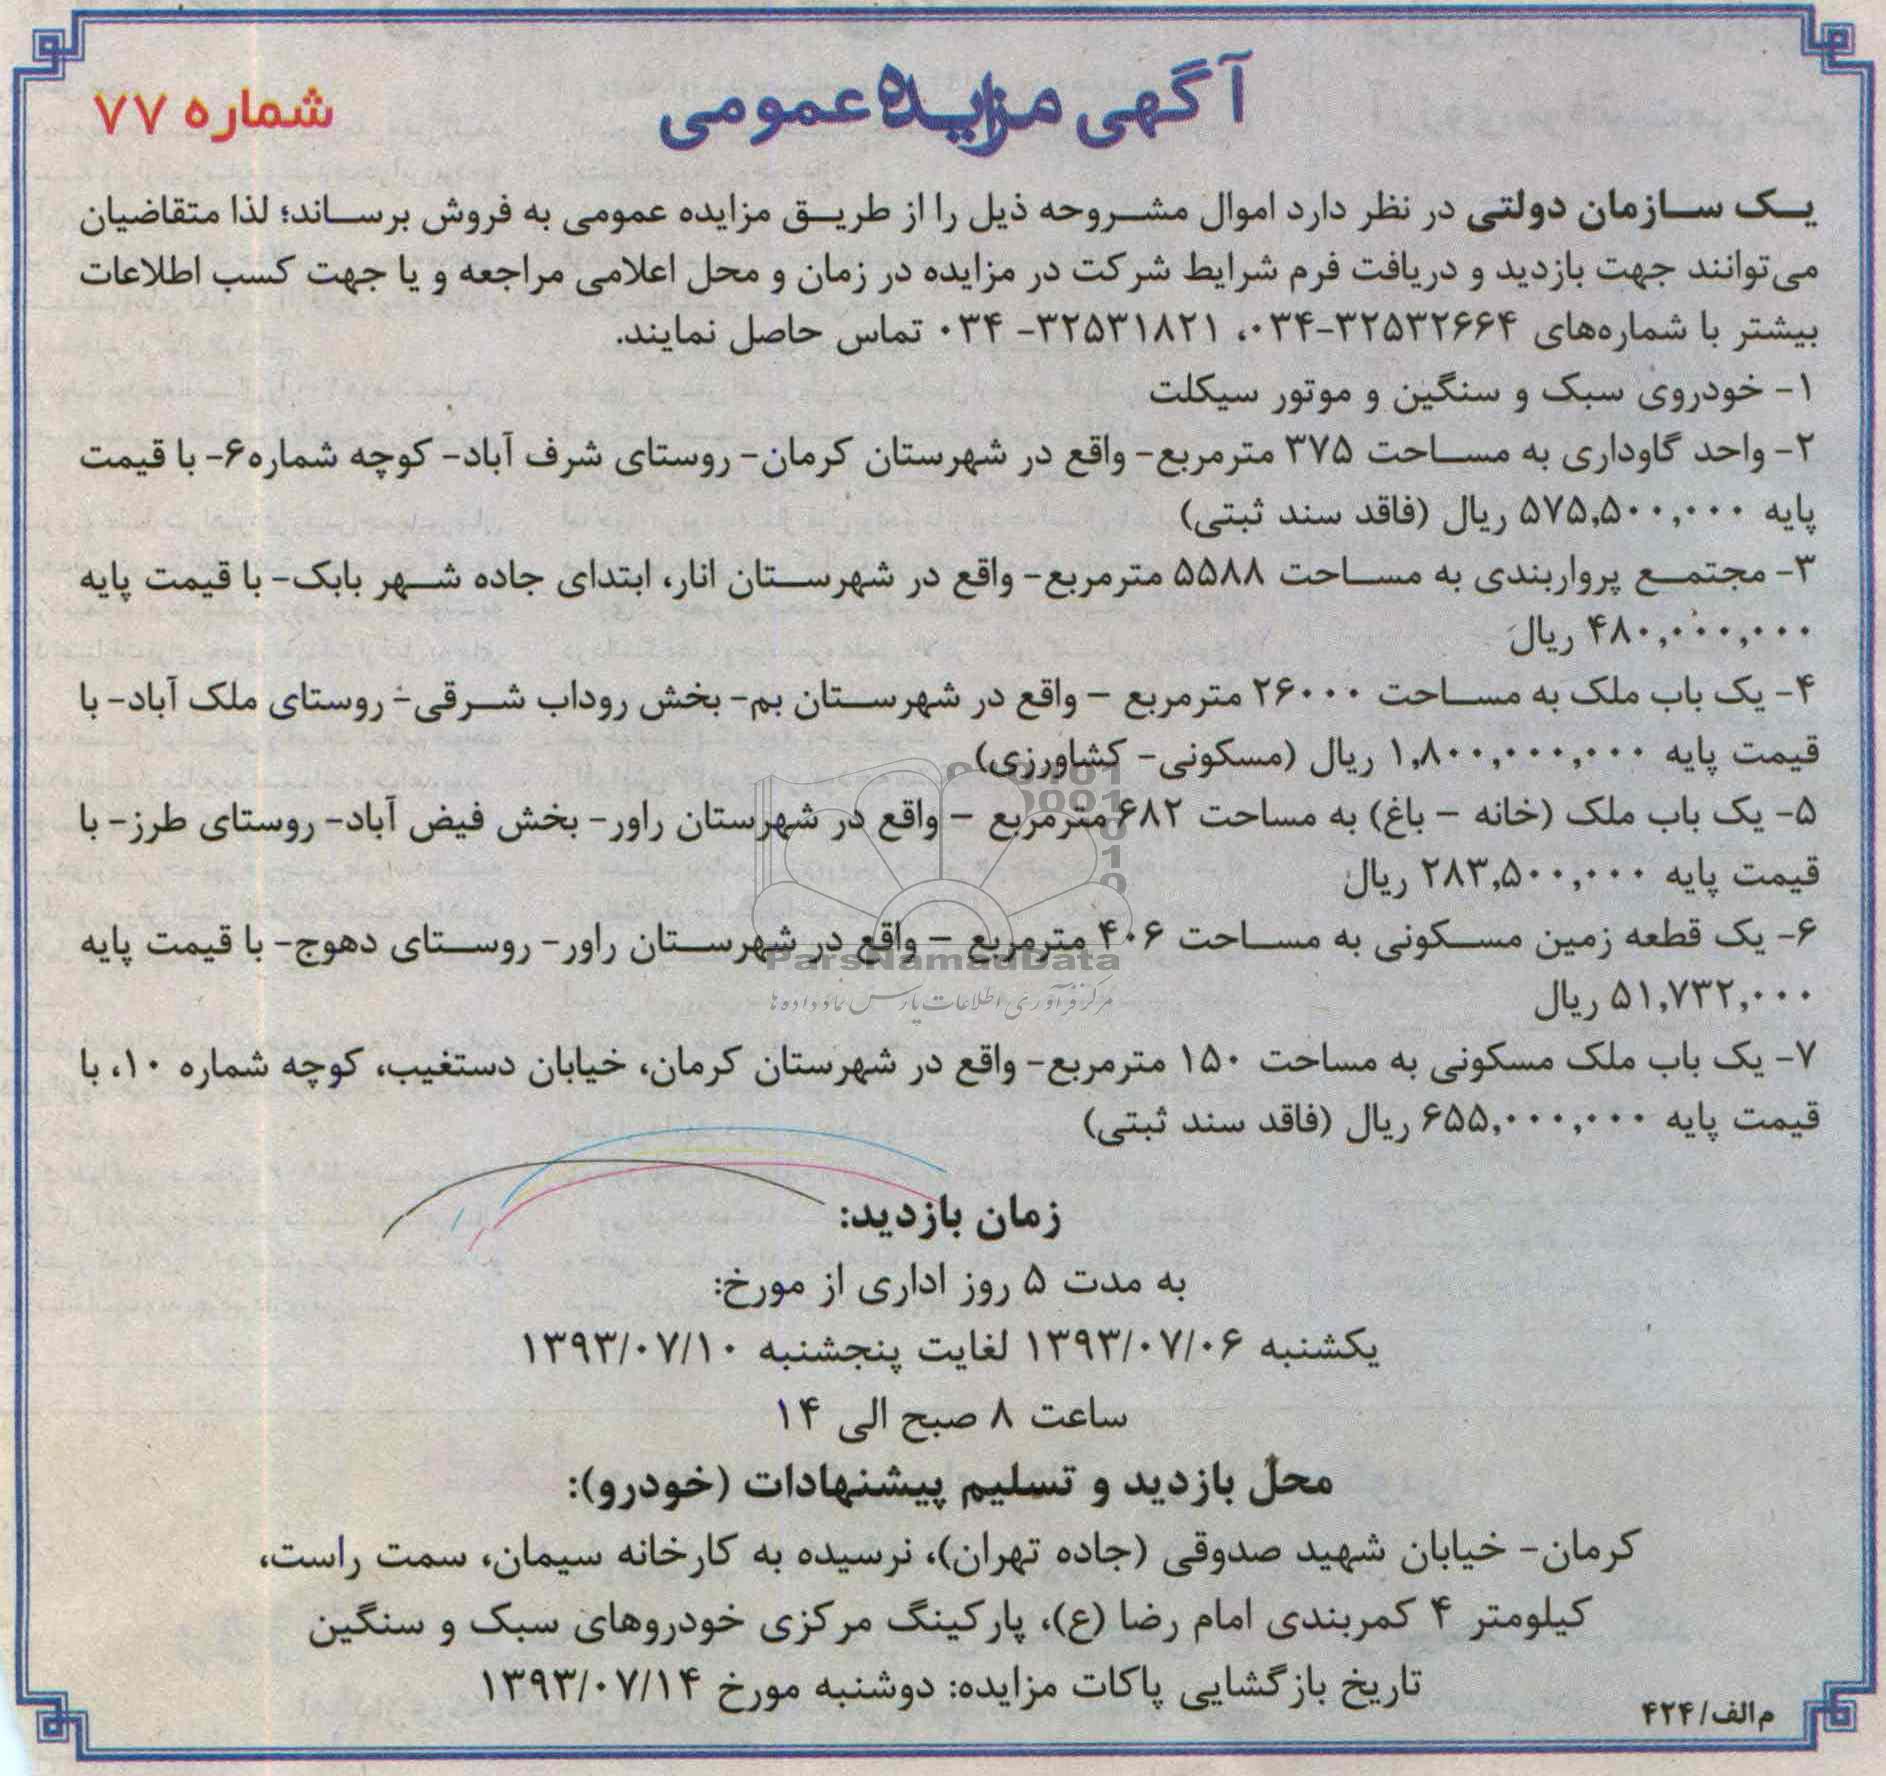 آگهی مزایده عمومی
شماره ۷۷
یک سازمان دولتی در نظر دارد اموال مشروحه ذیل را از طریق مزایده عمومی به فروش برساند؛ لذا متقاضیان
می‌توانند جهت بازدید و دریافت فرم شرایط شرکت در مزایده در زمان و محل اعلامی مراجعه و یا جهت کسب اطلاعات
بیشتر با شماره‌های ۳۲۵۳۲۶۶۴-۰۳۴، ۳۲۵۳۱۸۲۱- ۰۳۴ تماس حاصل نمایند.
۱- خودروی سبک و سنگین و موتور سیکلت
۲- واحد گاوداری به مساحت ۳۷۵ مترمربع- واقع در شهرستان کرمان- روستای شرف آباد- کوچه شماره۶- با قیمت
پایه ۵۷۵,۵۰۰,۰۰۰ ریال (فاقد سند ثبتی)
۳- مجتمع پرواربندی به مساحت ۵۵۸۸ مترمربع- واقع در شهرستان انار، ابتدای جاده شهر بابک- با قیمت پایه
۴۸۰,۰۰۰,۰۰۰ ریال
۴- یک باب ملک به مساحت ۲۶۰۰۰ مترمربع – واقع در شهرستان بم- بخش روداب شرقی- روستای ملک آباد- با
قیمت پایه ۱,۸۰۰,۰۰۰,۰۰۰ ریال (مسکونی- کشاورزی)
۵- یک باب ملک (خانه – باغ) به مساحت ۶۸۲ مترمربع – واقع در شهرستان راور- بخش فیض آباد- روستای طرز- با
قیمت پایه ۲۸۳,۵۰۰,۰۰۰ ریال
۶- یک قطعه زمین مسکونی به مساحت ۴۰۶ مترمربع – واقع در شهرستان راور- روستای دهوج- با قیمت پایه
ParsNamadData
مرکز فرآوری اطلاعات پارس نماد داده ها
۵۱,۷۳۲,۰۰۰ ریال
۷- یک باب ملک مسکونی به مساحت ۱۵۰ مترمربع- واقع در شهرستان کرمان، خیابان دستغیب، کوچه شماره ۱۰، با
قیمت پایه ۶۵۵,۰۰۰,۰۰۰ ریال (فاقد سند ثبتی)
زمان بازدید:
به مدت ۵ روز اداری از مورخ:
یکشنبه ۱۳۹۳/۰۷/۰۶ لغایت پنجشنبه ۱۳۹۳/۰۷/۱۰
ساعت ۸ صبح الی ۱۴
محل بازدید و تسلیم پیشنهادات (خودرو):
کرمان- خیابان شهید صدوقی (جاده تهران)، نرسیده به کارخانه سیمان، سمت راست،
کیلومتر ۴ کمربندی امام رضا (ع)، پارکینگ مرکزی خودروهای سبک و سنگین
تاریخ بازگشایی پاکات مزایده: دوشنبه مورخ ۱۳۹۳/۰۷/۱۴
م‌الف/۴۲۴